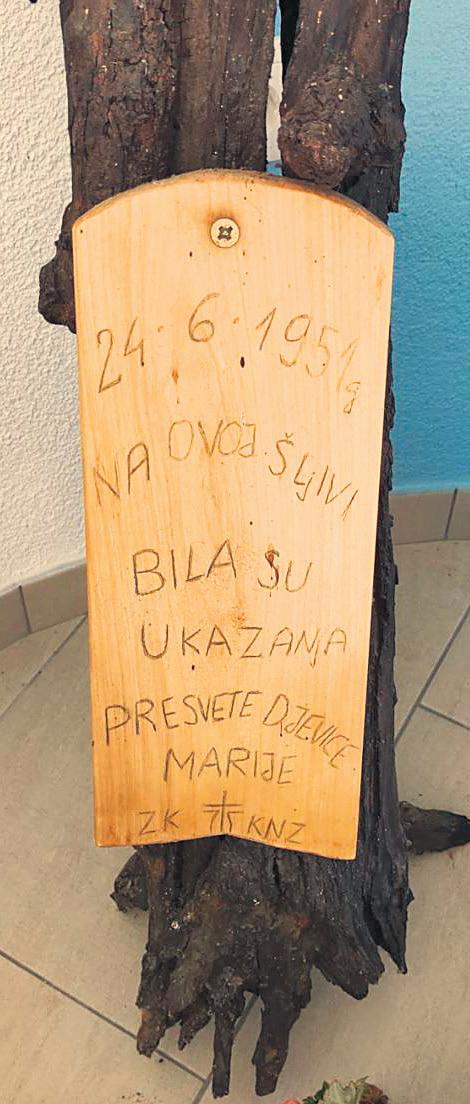 24. 6. 1951g
NA OVOJ ŠLJIVI
BILA SU
UKAZANJA
PRESVETE DJEVICE
MARIJE
ZK KNZ